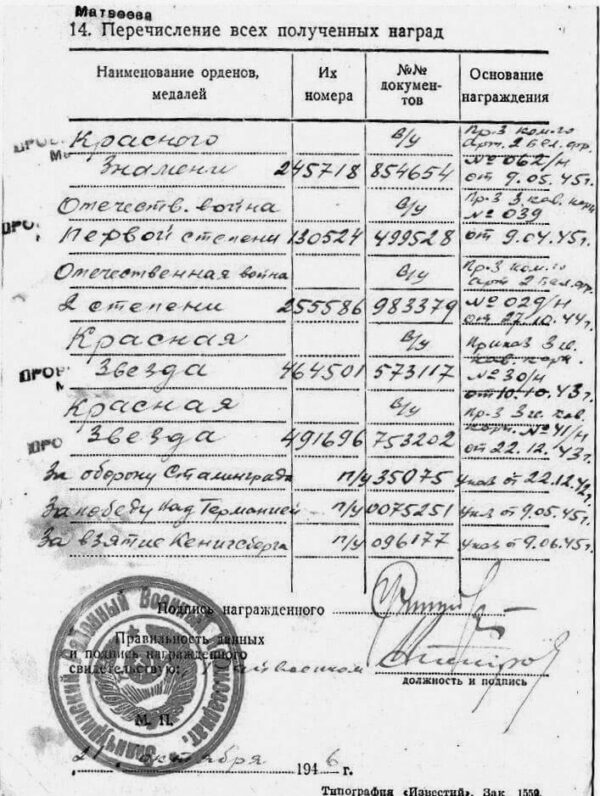 Матвеева
14. Перечисление всех полученных наград
Наименование орденов, медалей
Их номера
№№ документов
Основание награждения
Красного в/у Пр-з ком-го
арт. 2 Бел. фр.
Знамени 245718 854654 № 062/н
от 9.05.45г.
Отечеств. война в/у Пр-з 3 кав. корп.
№ 039
Первой степени 130524 499528 от 9.04.45г.
Отечественная война в/у Пр-з ком-го
арт 2 Бел. фр.
2 степени 255586 983379 № 029/н
от 27.10.44г.
Красная в/у Приказ 3 гв.
кав. корп.
Звезда 464501 573117 № 30/н
от 10.10.43г.
Красная в/у Пр-з 3 гв. кав.
корп. № 41/н
Звезда 491696 753202 от 22.12.43г.
За оборону Сталинграда п/у 35075 указ от 22.12.42г.
За победу над Германией п/у 0075251 указ от 9.05.45г.
За взятие Кенигсберга п/у 096177 указ от 9.06.45г.
Подпись награжденного
Правильность данных
и подпись награжденного
свидетельствую:
должность и подпись
М. П.
21 октября 1946 г.
Типография «Известий». Зак 1550.